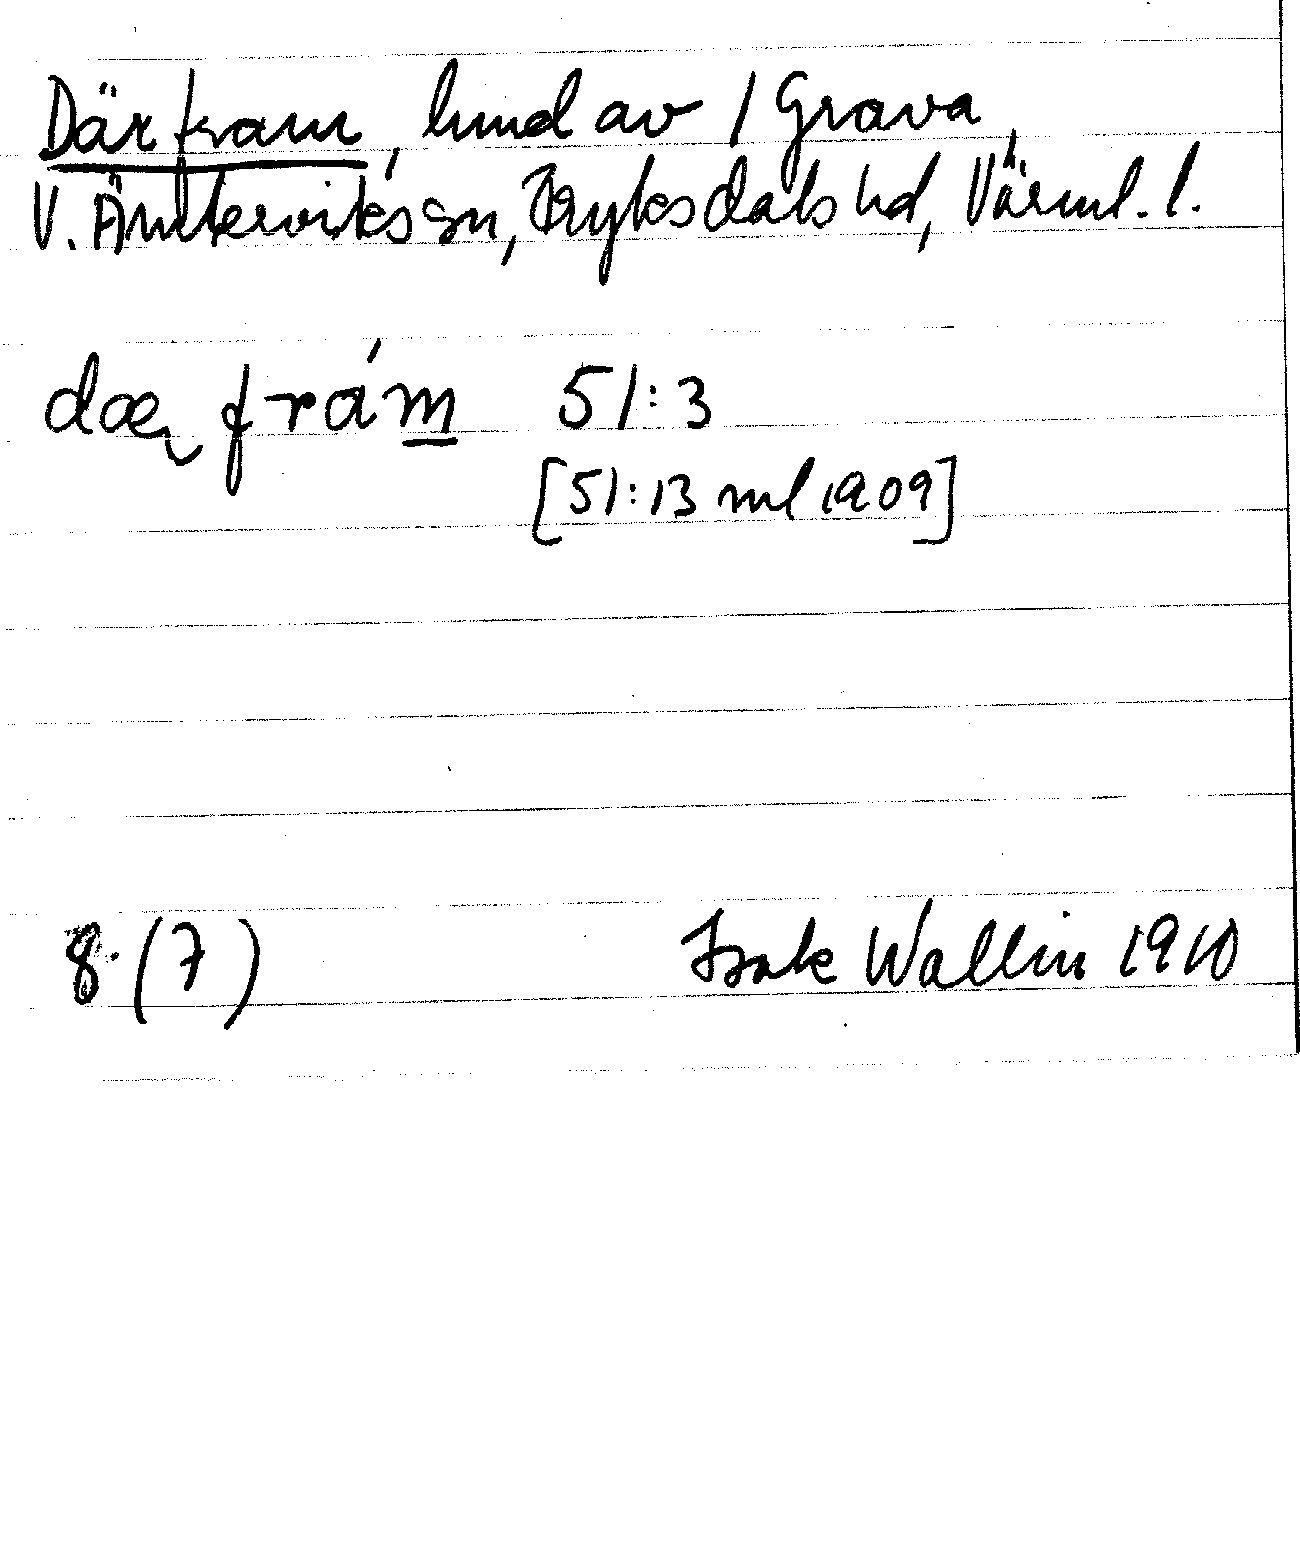 Där fram, hmd av 1 Grava,
V. Ämterviks sn, Fryksdals hd, Värml. l.
dæ̨ fram 51:3
[51:13 ml 1909]
8. (7) Isak Wallin 1910